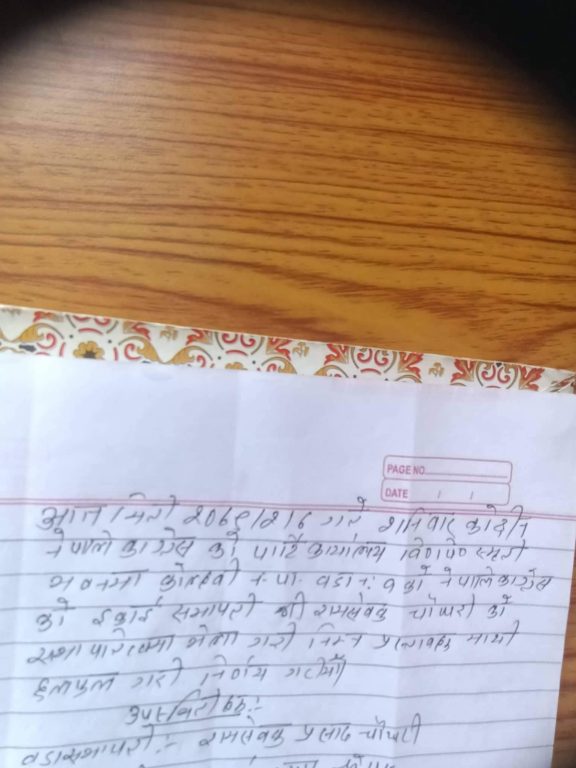 PAGE NO.
DATE
आज मिति २०७९।२।६ गते शनिवार कोदीन
नेपाली काग्रेस को पार्टि कार्यालय
भवनमा कोल्हवी न.पा. वडा नं. ९ को नेपाली काग्रेस
को ईकाई सभापती श्री रामसेवक चौधरी को
सभापतित्वमा भेला गरी निम्न प्रस्तावहरु माथी
छलफल गरी निर्णय गरीयो
उपस्थितीहरु :-
वडासभापती :- रामसेवक प्रसाद चौधरी